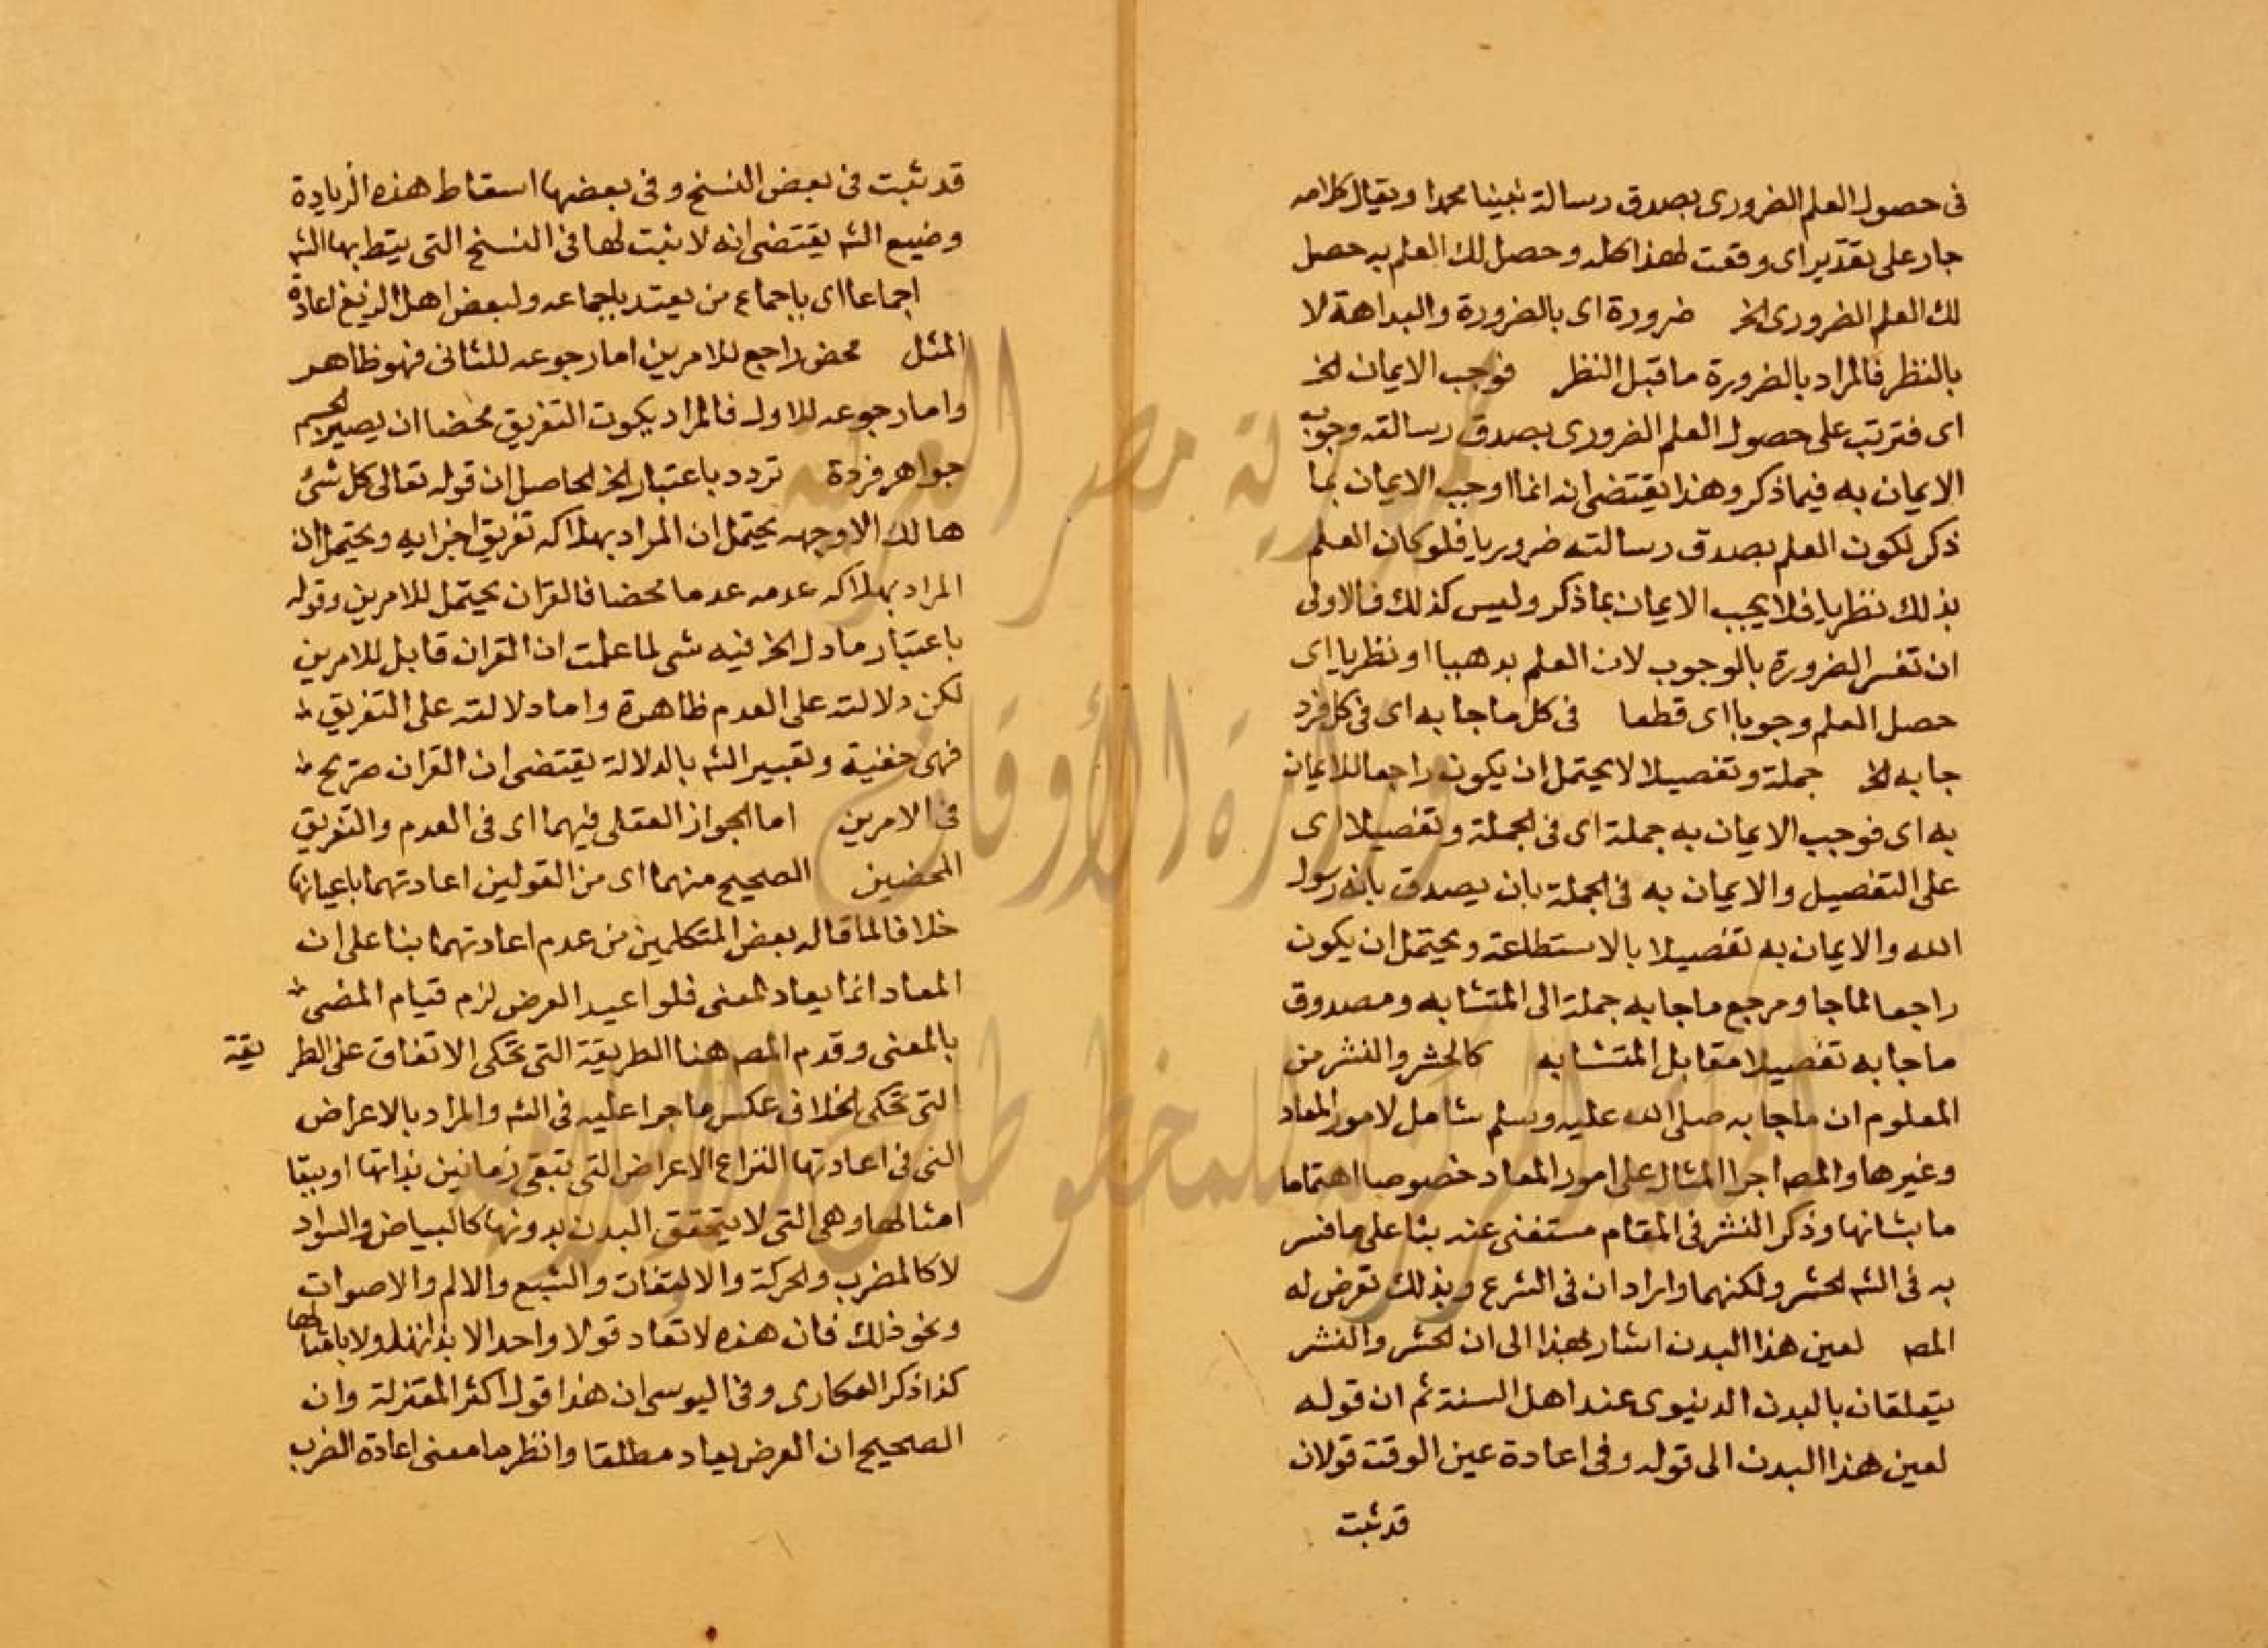 فى حصول العلم الضرورى بصدق رسالة نبينا محمدا ويقال كلامه
جار على تقدير اى وقعت لهذا كله وحصل لك العلم به حصل
لك العلم الضرورى الخ ضرورة اى بالضرورة والبداهة لا
بالنظر فالمراد بالضرورة ما قبل النظر فوجب الايمان الخ
اى فترتب على حصول العلم الضرورى بصدق رسالته وجوب
الايمان به فيما ذكر وهذا يقتضى انه انما اوجب الايمان بما
ذكر لكون العلم بصدق رسالته ضروريا فلو كان العلم
بذلك نظريا فلا يجب الايمان بما ذكر وليس كذلك فالاولى
ان تفسر الضرورة بالوجوب لان العلم بدهييا او نظريا اى
حصل العلم وجوبا اى قطعا فى كل ما جا به اى فى كل فرد
جا به الخ جملة وتفصيلا لا يحتمل ان يكون راجعا للايمان
به اى فوجب الايمان به جملة اى فى الجملة وتفصيلا اى
على التفصيل والايمان به فى الجملة بان يصدق بانه رسول
الله والايمان به تفصيلا بالاستطلعة ويحتمل ان يكون
راجعا لما جا ومرجع ما جا به جملة الى المتشابه ومصدوق
ما جا به تفصيلا مقابل المتشابه كالحشر والنشر من
المعلوم ان ما جا به صلى الله عليه وسلم شامل لامور المعاد
وغيرها والمصه اجرا المثال على امور المعاد خصوصا اهتماما
ما بشانها وذكر النشر فى المقام مستغنى عنه بنا على ما فسر
به فى الشه الحشر ولكنهما وايراد ان فى الشرع وبذلك تعرض له
المصه لعين هذا البدن اشار بهذا الى ان الحشر والنشر
يتعلقان بالبدن الدنيوى عند اهل السنة ثم ان قوله
لعين هذا البدن الى قوله وفى اعادة عين الوقت قولان
قد ثبت
قد ثبت فى بعض النسخ وفى بعضها اسقاط هذه الزيادة
وضيع الشه يقتضى انه لا ثبت لها فى النسخ التى يتط بها الشه
اجماعا اى باجماع من يعتد باجماعه ولبعض اهل الزيغ اعادة
المثل محض راجع للامرين اما رجوعه للثانى فهو ظاهر
واما رجوعه للاول فالمراد بكون التفريق محضا ان يصير الجسم
جواهر فردة تردد باعتبار الخ الحاصل ان قوله تعالى كل شئ
هالك الا وجهه يحتمل ان المراد بهلاكه تفريق اجزايه ويحتمل ان
المراد بهلاكه عدمه عدما محضا فالقران يحتمل للامرين وقوله
باعتبار ما دل الخ فيه شى لما علمت ان القران قابل للامرين
لكن دلالته على العدم ظاهرة واما دلالته على التفريق
فهى خفية وتعبير الشه بالدلالة يقتضى ان القران صريح
فى الامرين اما الجواز العقلى فيهما اى فى العدم والتفريق
المحضين الصحيح منهما اى من القولين اعادتهما باعيانها
خلافا لما قاله بعض المتكلمين من عدم اعادتهما بنا على ان
المعاد انما يعاد لمعنى فلو اعيد العرض لزم قيام المضى
بالمعنى وقدم المصه هنا الطريقة التى تحكى الاتفاق على الطر يقة
التى تحكى الخلاف عكس ما جرا عليه فى الشه والمراد بالاعراض
التى فى اعادتها النزاع الاعراض التى تبقى زمانين بذاتها او ببقا
امثالها وهى التى لا يتحقق البدن بدونها كالبياض والسواد
لا كالضرب والحركة والالتفات والشبع والالم والاصوات
ونحو ذلك فان هذه لا تعاد قولا واحدا لا بذاتها ولا بامثالها
كذا ذكر العكارى وفى اليوسى ان هذا قول اكثر المعتزلة وان
الصحيح ان العرض يعاد مطلقا وانظر ما معنى اعادة الضرب